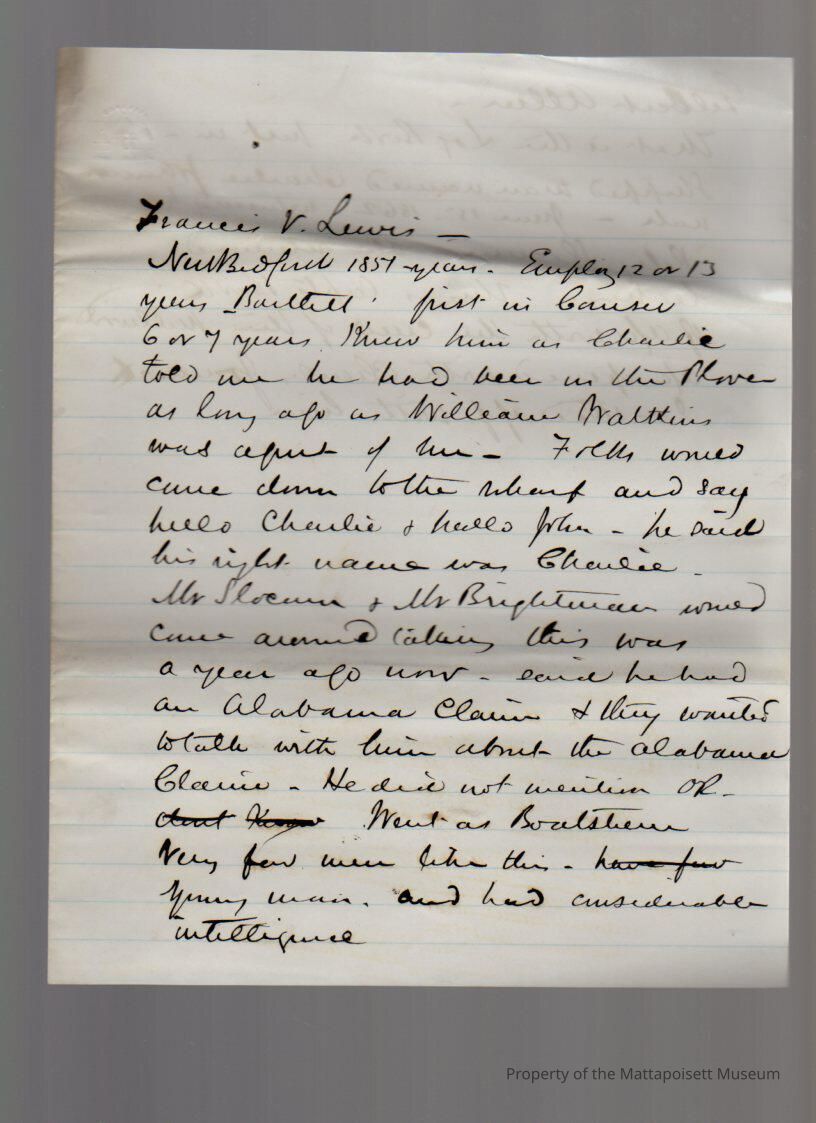 Francis V. Lewis —
New Bedford 1851 - years - Employ 12 or 13
years Bartlett first in
6 or 7 years. Knew him as Charlie
told me he had been in the Plover
as long ago as William Watkins
was agent of her - Folks would
come down to the wharf and say
hello Charlie & hello John - he said
his right name was Charlie -
Mr Slocum & Mr Brightman would
come around talking this was
a year ago now - said he had
an Alabama Claim & they wanted
to talk with him about the Alabama
Claim - He did not mention OR -
dont Know Went as Boatsteerer
Very few men like this - have few
Young man. and had considerable
intelligence
Property of the Mattapoisett Museum